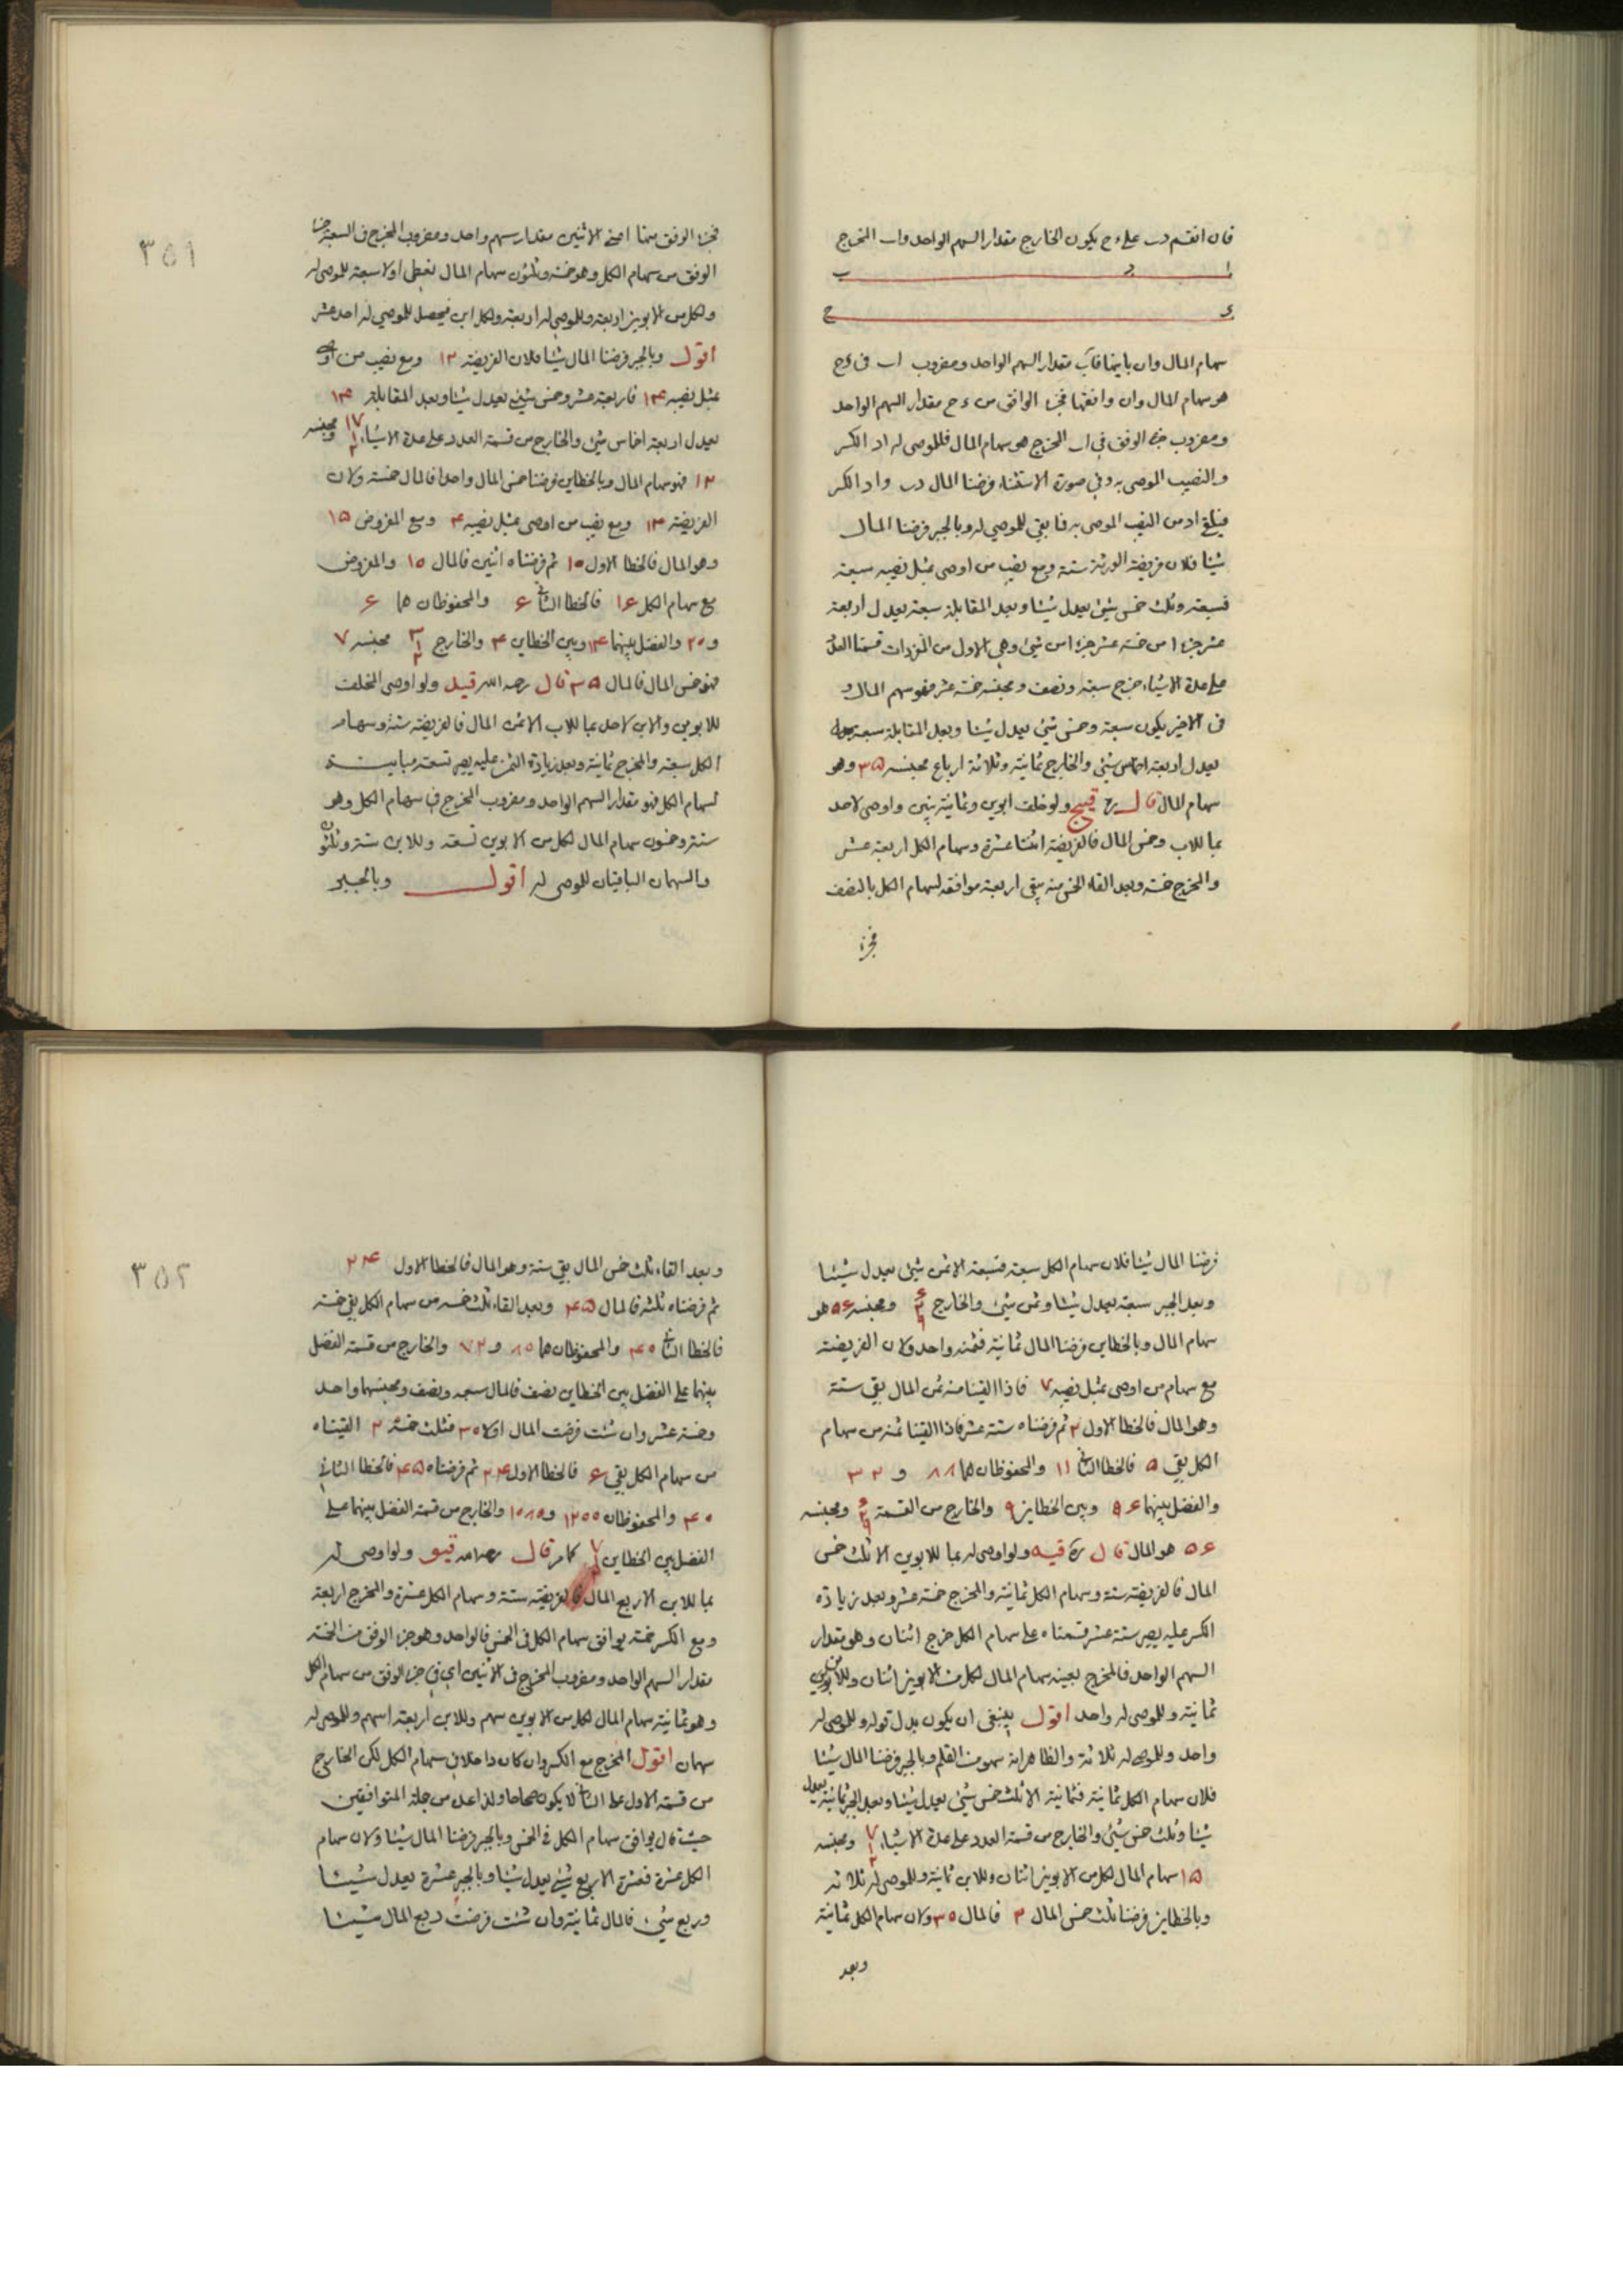 فان انقسم دب على ءح يكون الخارج مقدار السهم الواحد واب المخرج
ا د ب
ء ح
سهام المال وان باينها فدب مقدار السهم الواحد ومضروب اب في ءح
هو سهام المال وان وافقها فجزء الوافق من ءح مقدار السهم الواحد
ومضروب جزء الوفق في اب المخرج هو سهام المال فللموصى له اد الكسر
والنصيب الموصى به وفي صورة الاستثناء فرضنا المال دب واد الكسر
فيلقى اد من النصيب الموصى به فما بقي للموصي له وبالجبر فرضنا المال
شيئا فلان فريضة الورثة ستة ومع نصيب من اوصى بمثل نصيبه سبعة
فسبعة وثلث خمس شيئ يعدل شيئا وبعد المقابلة سبعة يعدل اربعة
عشر جزءا من خمسة عشر جزءا من شيئ وهي الاول من المفردات قسمنا العدد
على عدة الاشياء خرج سبعة ونصف ومجنسه خمسة عشر فهو سهم المال و
في الاخير يكون سبعة وخمس شيئ يعدل شيئا وبعد المقابلة سبعة
يعدل اربعة اخماس شيئ والخارج ثمانية وثلاثة ارباع مجنسه ٣٥ وهو
سهام المال قال ره قيج ولو خلف ابوين وثمانية بنين واوصى لاحد
بما للاب وخمس المال فالفريضة اثنتا عشرة وسهام الكل اربعة عشر
والمخرج خمسة وبعد القاء الخمس منه يبقى اربعة موافقة لسهام الكل بالنصف
فجزء
٣٥١
فجزء الوفق منها اعني الاثنين مقدار سهم واحد ومضروب المخرج في السبعة جزء
الوفق من سهام الكل وهو خمسة وثلثون سهام المال نعطي اولا سبعة للموصى له
ولكل من الابوين اربعة وللموصى له اربعة ولكل ابن فيحصل للموصي له احد عشر
اقول وبالجبر فرضنا المال شيئا فلان الفريضة ١٢ ومع نصيب من اوصى
بمثل نصيبه ١٤ فاربعة عشر وخمس شيئ يعدل شيئا وبعد المقابلة ١٤
يعدل اربعة اخماس شيئ والخارج من قسمة العدد على عدة الاشياء ١٧ ١ ٢ ومجنسه
فهو سهام المال وبالخطاين فرضنا خمس المال واحدا فالمال خمسة ولان
الفريضة ١٢ ومع نصيب من اوصى بمثل نصيبه ١٤ ومع المفروض ١٥
وهو المال فالخطا الاول ١٠ ثم فرضناه اثنين فالمال ١٠ والمفروض
مع سهام الكل ١٦ فالخطا الثاني ٦ والمحفوظان هما ٦
و٢٠ والفضل بينهما ١٤ وبين الخطاين ٤ والخارج ٣ ١ ٢ مجنسه ٧
فهو خمس المال فالمال ٣٥ قال رحمه الله قيد ولو اوصى المخلف
للابوين والابن لاحد بما للاب الا ثمن المال فالفريضة ستة وسهام
الكل سبعة والمخرج ثمانية وبعد زيادة الثمن عليه يصير تسعة مباينة
لسهام الكل فهو مقدار السهم الواحد ومضروب المخرج في سهام الكل وهو
ستة وخمسون سهام المال لكل من الابوين تسعة وللابن ستة وثلثون
والسهمان الباقيان للموصى له اقول وبالجبر
فرضنا المال شيئا فلان سهام الكل سبعة فسبعة الا ثمن شيئ يعدل شيئا
وبعد الجبر سبعة يعدل شيئا وثمن شيئ والخارج ٦ ٢ ٩ ومجنسه ٥٦ هو
سهام المال وبالخطاين فرضنا المال ثمانية فثمنه واحد ولان الفريضة
مع سهام من اوصى بمثل نصيبه ٧ فاذا القينا منه ثمن المال بقي ستة
وهو المال فالخطا الاول ٢ ثم فرضناه ستة عشر فاذا القينا ثمنه من سهام
الكل بقي ٥ فالخطا الثاني ١١ والمحفوظان هما ٨٨ و ٣٢
والفضل بينهما ٥٦ وبين الخطاين ٩ والخارج من القسمة ٦ ٢ ٩ ومجنسه
٥٦ هو المال قال ره قيه ولو اوصى له بما للابوين الا ثلث خمس
المال فالفريضة ستة وسهام الكل ثمانية والمخرج خمسة عشر وبعد زيادة
الكسر عليه يصير ستة عشر قسمناه على سهام الكل خرج اثنان وهو مقدار
السهم الواحد فالمخرج بعينه سهام المال لكل من الابوين اثنان وللابن
ثمانية وللموصى له واحد اقول ينبغي ان يكون بدل قوله وللموصى له
واحد وللموصى له ثلاثة والظاهر انه سهو من القلم وبالجبر فرضنا المال شيئا
فلان سهام الكل ثمانية فثمانية الا ثلث خمس شيئ يعدل شيئا وبعد الجبر ثمانية يعدل
شيئا وثلث خمس شيئ والخارج من قسمة العدد على عدة الاشياء ٧ ١ ٢ ومجنسه
١٥ سهام المال لكل من الابوين اثنان وللابن ثمانية وللموصى له ثلاثة
وبالخطاين فرضنا ثلث خمس المال ٢ فالمال ٣٠ ولان سهام الكل ثمانية
وبعد
٣٥٢
وبعد القاء ثلث خمس المال بقي ستة وهو المال فالخطا الاول ٢٤
ثم فرضناه ثلثة فالمال ٤٥ وبعد القاء ثلث خمسه من سهام الكل بقي خمسة
فالخطا الثاني ٤٠ والمحفوظان هما ٨٠ و ٧٢ والخارج من قسمة الفضل
بينهما على الفضل بين الخطاين نصف فالمال سبعة ونصف ومجنسهما واحد
وخمسة عشر وان شئت فرضت المال اولا ٣٠ فثلث خمسه ٢ القيناه
من سهام الكل بقي ٦ فالخطا الاول ٢٤ ثم فرضناه ٤٥ فالخطا الثاني
٤٠ والمحفوظان ١٢٠٠ و١٠٨٠ والخارج من قسمة الفضل بينهما على
الفضل بين الخطاين ٧ ١ ٢ كما مر قال رحمه الله قيو ولو اوصى له
بما للابن الا ربع المال فالفريضة ستة وسهام الكل عشرة والمخرج اربعة
ومع الكسر خمسة يوافق سهام الكل في الخمس فالواحد وهو جزء الوفق من الخمسة
مقدار السهم الواحد ومضروب المخرج في الاثنين اي في جزء الوفق من سهام الكل
وهو ثمانية سهام المال لكل من الابوين سهم وللابن اربعة اسهم وللموصى له
سهمان اقول المخرج مع الكسر وان كان داخلا في سهام الكل لكن الخارج
من قسمة الاول على الثاني لا يكون صحاحا ولذا عد من جملة المتوافقين
حيث قال يوافق سهام الكل في الخمس وبالجبر فرضنا المال شيئا ولان سهام
الكل عشرة فعشرة الا ربع شيئ يعدل شيئا وبالجبر عشرة يعدل شيئا
وربع شيئ فالمال ثمانية وان شئت فرضت ربع المال شيئا